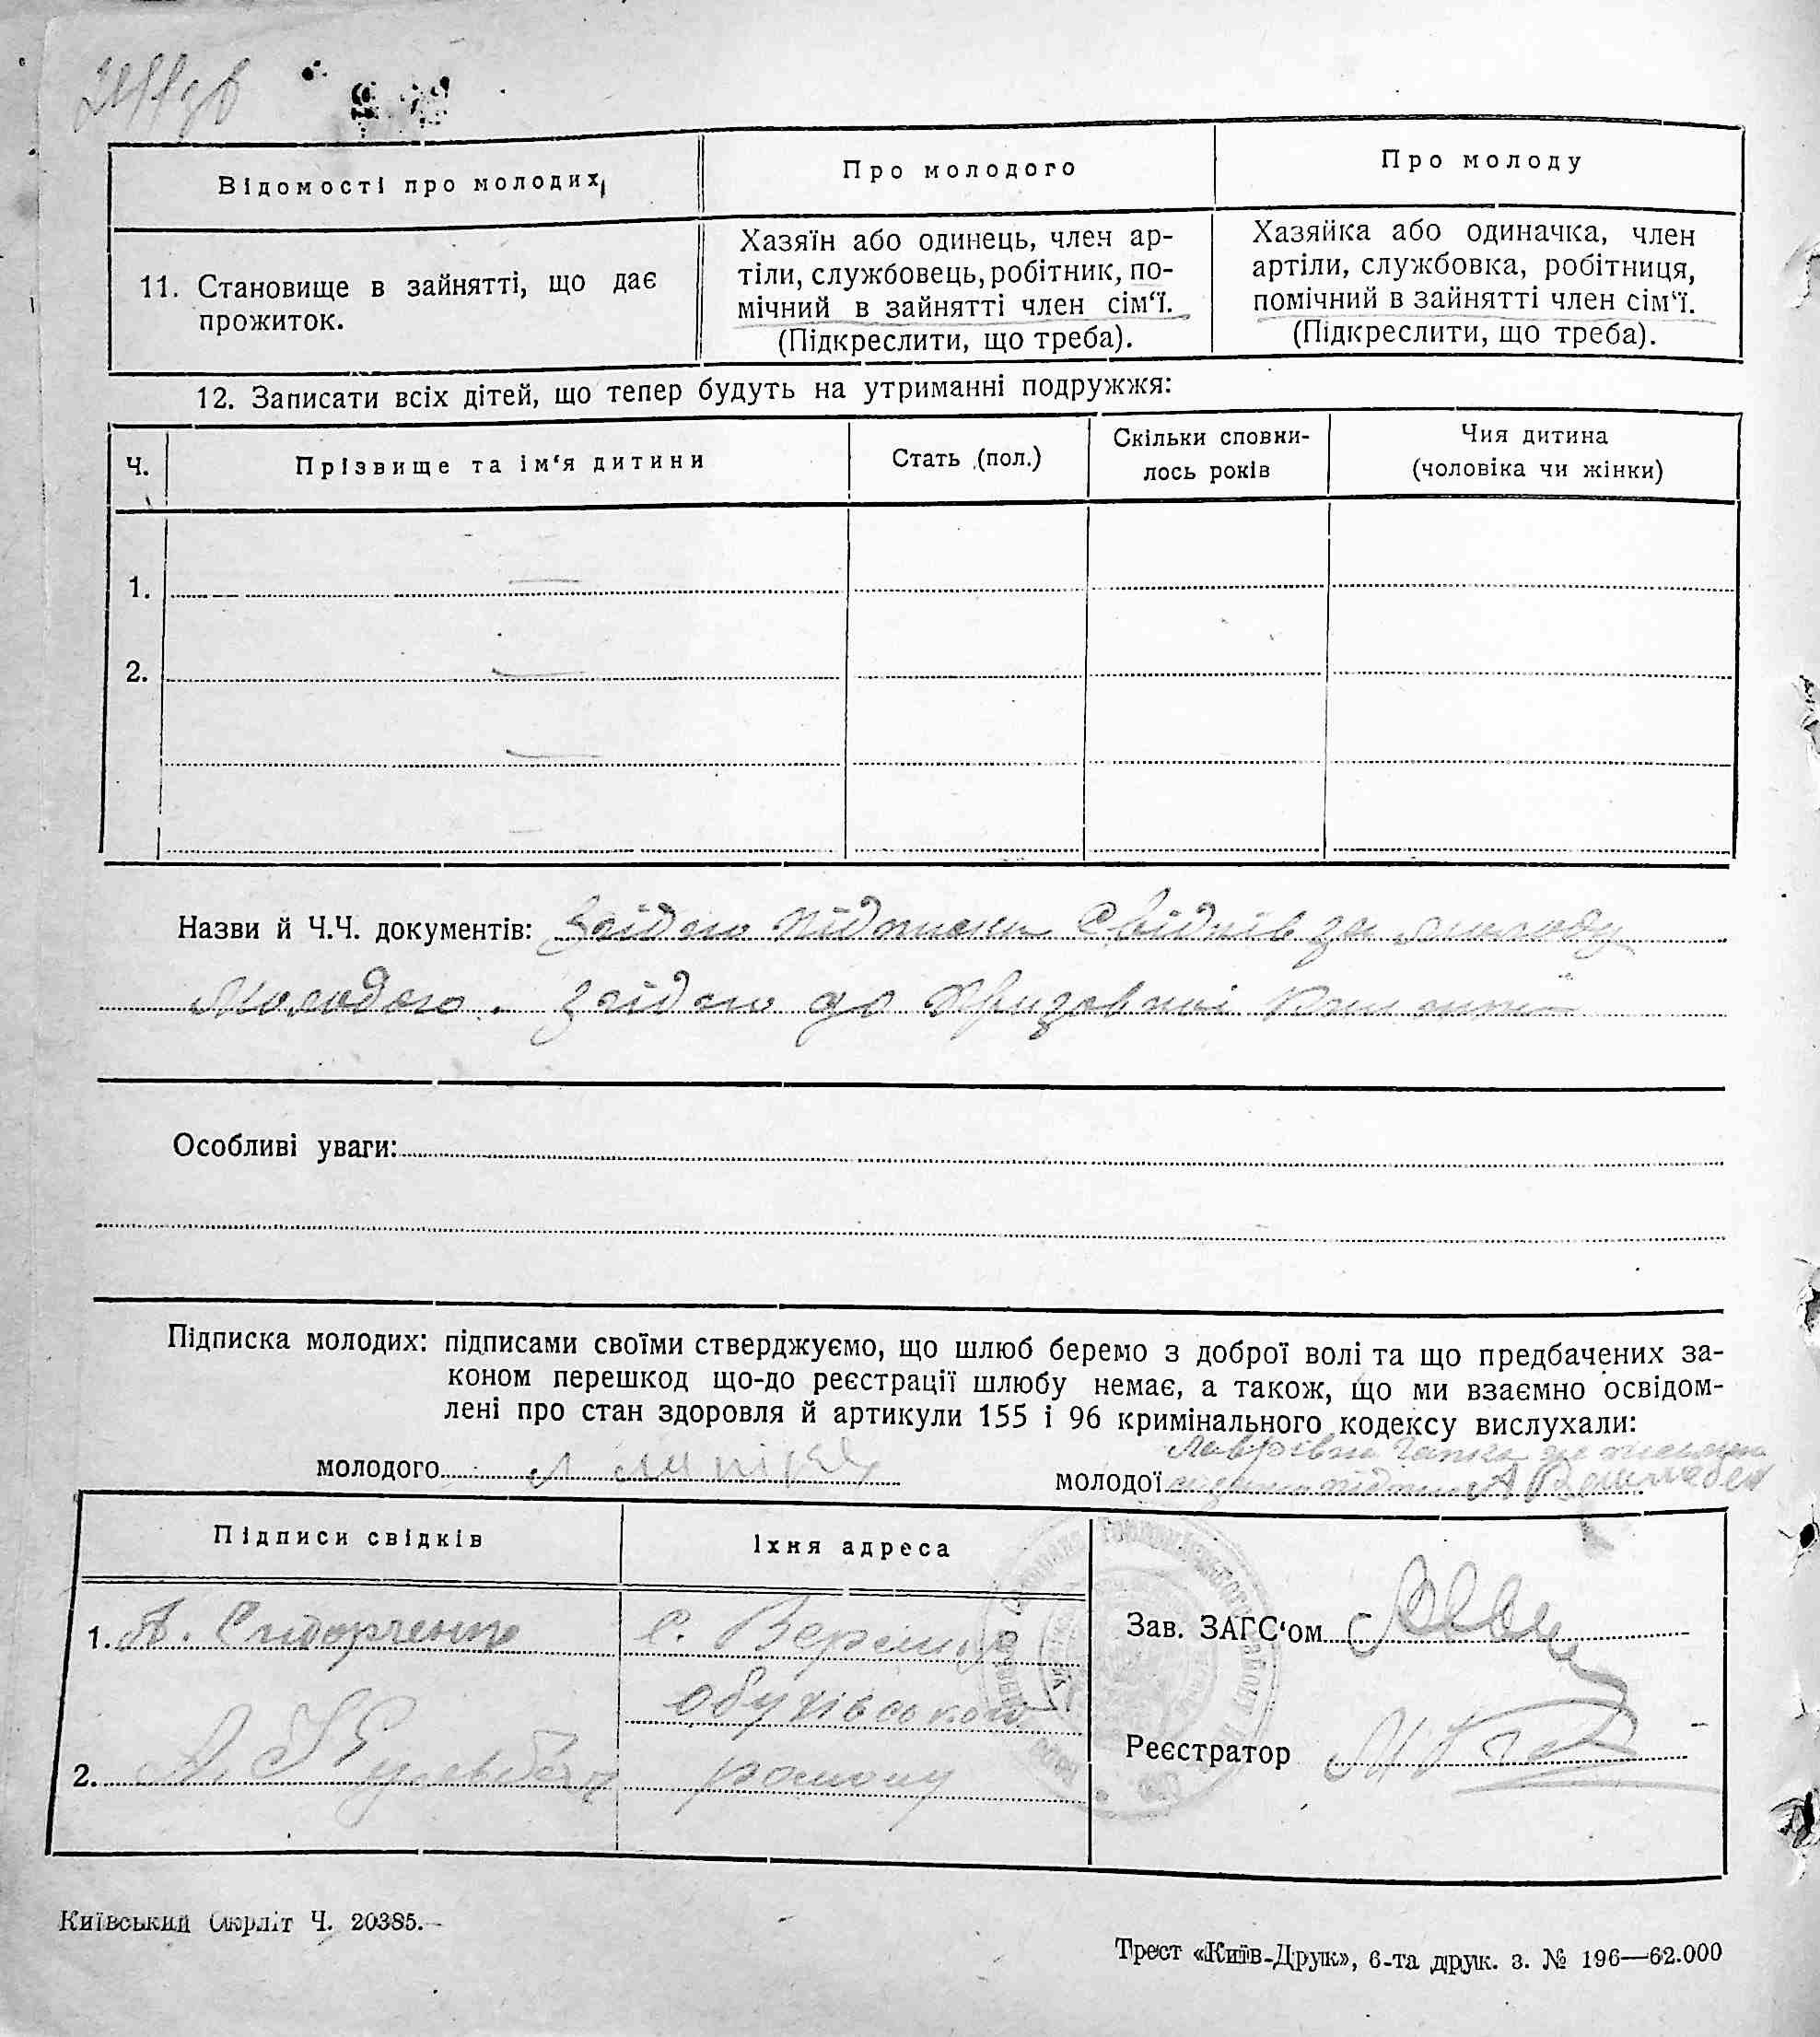 Відомості про молодих,
Про молодого
Про молоду
11. Становище в зайнятті, що дає
прожиток.
Хазяїн або одинець, член ар-
тіли, службовець, робітник, по-
мічний в зайнятті член сім‘ї.
(Підкреслити, що треба).
Хазяйка або одиначка, член
артіли, службовка, робітниця,
помічний в зайнятті член сім‘ї.
(Підкреслити, що треба).
12. Записати всіх дітей, що тепер будуть на утриманні подружжя:
Ч.
Прізвище та ім‘я дитини
Стать (пол.)
Скільки сповни-
лось років
Чия дитина
(чоловіка чи жінки)
1.
2.
Назви й Ч.Ч. документів: Згідно Підписки Свідків за молоду
Молодого. Згідно до Призовної
Особливі уваги:
Підписка молодих: підписами своїми стверджуємо, що шлюб беремо з доброї волі та що предбачених за-
коном перешкод що-до реєстрації шлюбу немає, а також, що ми взаємно освідом-
лені про стан здоровля й артикули 155 і 96 кримінального кодексу вислухали:
молодого
молодої
Підписи свідків
Їхня адреса
1. А. Сидорченко
с.
Обухівського
району
2.
Зав. ЗАГС‘ом
Реєстратор
Київський Окрліт Ч. 20385.
Трест «Київ-Друк», 6-та друк. з. № 196—62.000